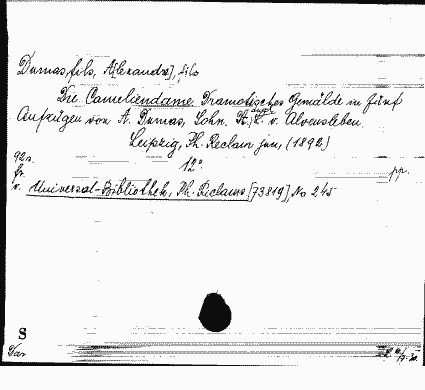 Dumas, fils, A[lexandre], fils
Die Cameliendame. Dramatisches Gemälde in fünf
Aufzügen von A. Dumas, Sohn. v. Alvensleben.
Leipzig, Ph. Reclam jun, (1892)
92a. 12° pp.
fr.
v. Universal-Bibliothek, Ph. Reclams, [73819], No 245
S